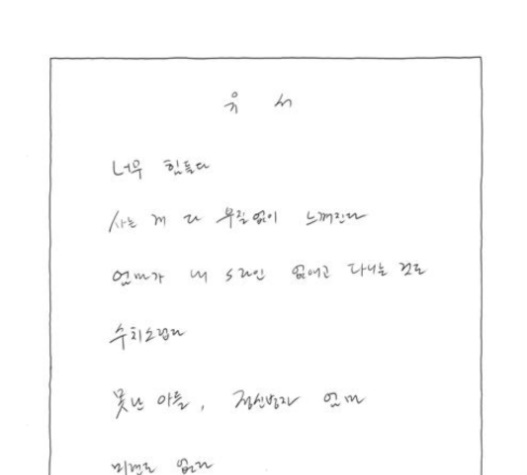 유 서
너무 힘들다
사는 게 다 부질없이 느껴진다
엄마가 내 S라인 업고 다니는 것도
수치스럽다
못난 아들, 정신병자 엄마
미련도 없다